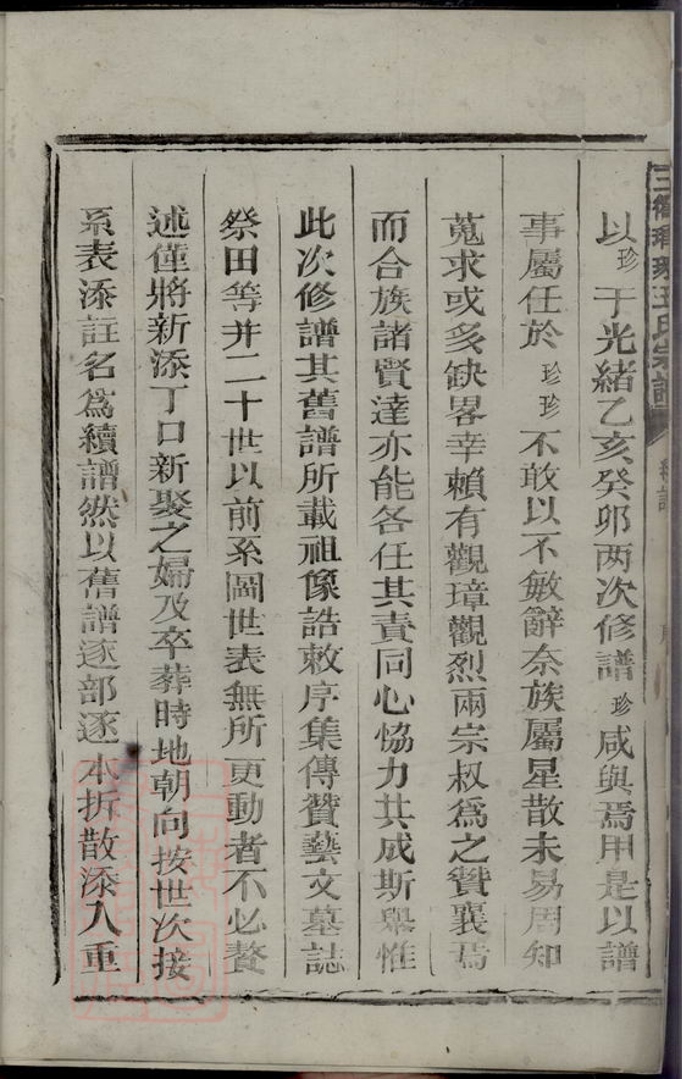 以珍于光緒乙亥癸卯两次修譜珍咸與焉用是以譜
事屬任於珍珍不敢以不敏辭奈族屬星散未易周知
蒐求或多缺畧幸賴有觀璋觀烈兩宗叔爲之贊襄焉
而合族諸賢達亦能各任其責同心恊力共成斯舉惟
此次修譜其舊譜所載祖像誥敕序集傳贊藝文墓誌
祭田等并二十世以前系圖世表無所更動者不必贅
述僅將新添丁口新娶之婦及卒葬時地朝向按世次接
系表添註名爲續譜然以舊譜逐部逐本折散添入重